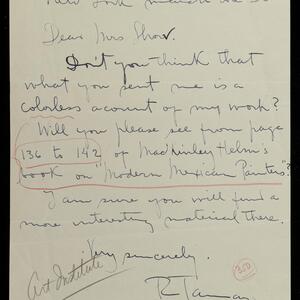 New York March
Dear Mrs Show.
Don't you think that
what you sent me is a
colorless acount of my work?
Will you please see from page
136 to 142 of MacKinley Helm's
book on "Modern Mexican Painters"?
I am sure you will find a
more interesting material there.
Very sincerely.
Art Institute
350
R. Tamayo